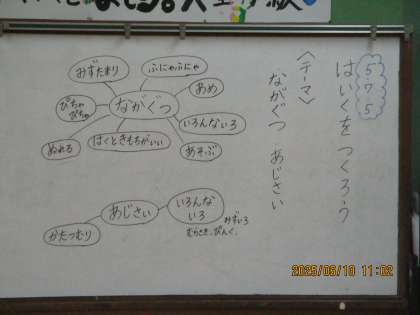 5 7 5
はいくを つくろう
〈テーマ〉
ながぐつ あじさい
みずたまり
ふにゃふにゃ
あめ
ぴちゃ
ぴちゃ
ながぐつ
いろんないろ
ぬれる
はくときもちがいい
あそぶ
あじさい
いろんな
いろ
みずいろ
むらさき、ぴんく、
かたつむり
2025/06/10 11:02